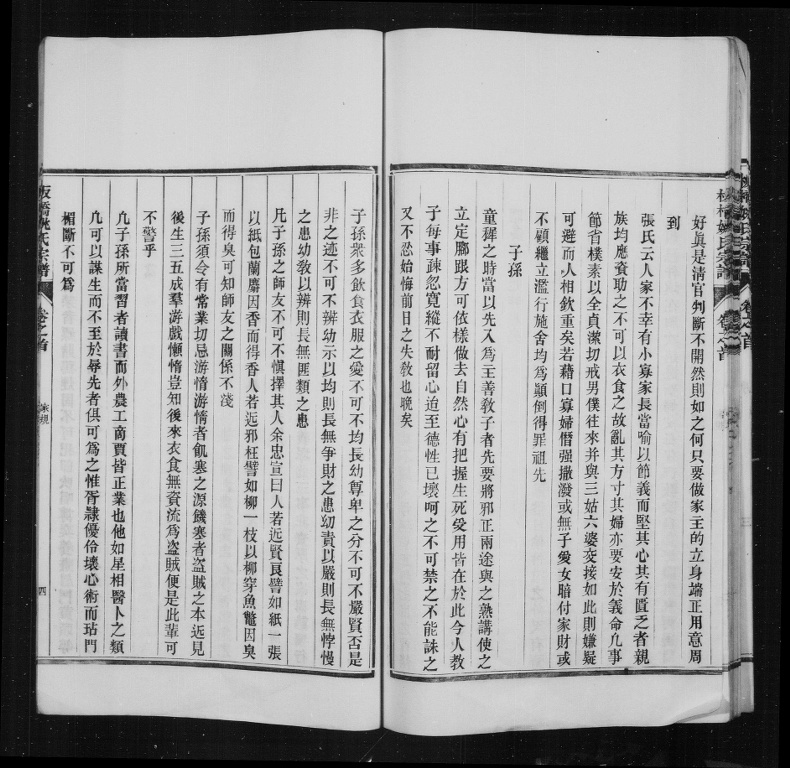 好眞是淸官判斷不開然則如之何只要做家主的立身端正用意周
到
張氏云人家不幸有小寡家長當喻以節義而堅其心其有匱乏者親
族均應賚助之不可以衣食之故亂其方寸其婦亦要安於義命凢事
節省樸素以全貞潔切戒男僕往來并與三姑六婆交接如此則嫌疑
可避而人相欽重矣若藉口寡婦僭强撒潑或無子愛女賠付家財或
不顧繼立濫行施舍均爲顚倒得罪祖先
子孫
童穉之時當以先入爲主善敎子者先要將邪正兩途與之熟講使之
立定腳跟方可依樣做去自然心有把握生死愛用皆在於此今人敎
子每事疎忽寬縱不耐留心迨至德性已壞呵之不可禁之不能誅之
又不忍始悔前日之失敎也晚矣
子孫衆多飮食衣服之愛不可不均長幼尊卑之分不可不嚴賢否是
非之迹不可不辨幼示以均則長無爭財之患幼責以嚴則長無悖慢
之患幼敎以辨則長無匪類之患
凢子孫之師友不可不慎擇其人余忠宣曰人若近賢良譬如紙一張
以紙包蘭麝因香而得香人若近邪枉譬如柳一枝以柳穿魚鼈因臭
而得臭可知師友之關係不淺
子孫須令有常業切忌游惰游惰者飢寒之源饑寒者盜賊之本近見
後生三五成羣游戲懶惰豈知後來衣食無資流爲盜賊便是此輩可
不警乎
凢子孫所當習者讀書而外農工商賈皆正業也他如星相醫卜之類
凢可以謀生而不至於辱先者俱可爲之惟胥隷優伶壞心術而玷門
楣斷不可爲
板橋姚氏宗譜
卷之首
家規
四